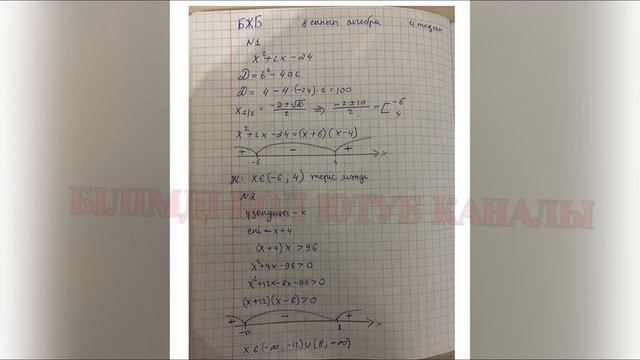 БЖБ 8 сынып алгебра 4 тоқсан
N1
x²+2x-24
D = b²-4ac
D = 4-4·(-24)·1=100
x₁/₂ = -2±√D/2 ⇒ -2±10/2 = [-6 4
x²+2x-24=(x+6)(x-4)
+ - +
-6 4 x
Ж: x∈(-6; 4) теріс мәнді
N2
БІЛІМДІ БОЛ ЮТУБ КАНАЛЫ
ұзындығы - x
ені - x+4
(x+4)x >96
x²+4x-96>0
x²+12x-8x-96>0
(x+12)(x-8)>0
+ - +
-12 x
x∈(-∞; -12)∪(8; +∞)